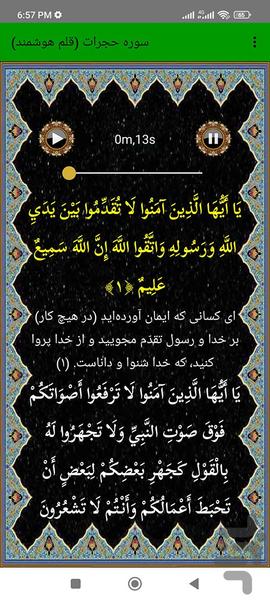 6:57 PM
سوره حجرات (قلم هوشمند)
0m,13s
يَا أَيُّهَا الَّذِينَ آمَنُوا لَا تُقَدِّمُوا بَيْنَ يَدَيِ
اللَّهِ وَرَسُولِهِ وَاتَّقُوا اللَّهَ إِنَّ اللَّهَ سَمِيعٌ
عَلِيمٌ ﴿١﴾
ای کسانی که ایمان آورده‌اید (در هیچ کار)
بر خدا و رسول تقدّم مجویید و از خدا پروا
کنید، که خدا شنوا و داناست. (۱)
يَا أَيُّهَا الَّذِينَ آمَنُوا لَا تَرْفَعُوا أَصْوَاتَكُمْ
فَوْقَ صَوْتِ النَّبِيِّ وَلَا تَجْهَرُوا لَهُ
بِالْقَوْلِ كَجَهْرِ بَعْضِكُمْ لِبَعْضٍ أَنْ
تَحْبَطَ أَعْمَالُكُمْ وَأَنْتُمْ لَا تَشْعُرُونَ